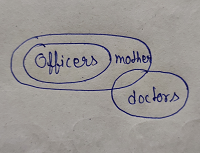 Officers mother
doctors